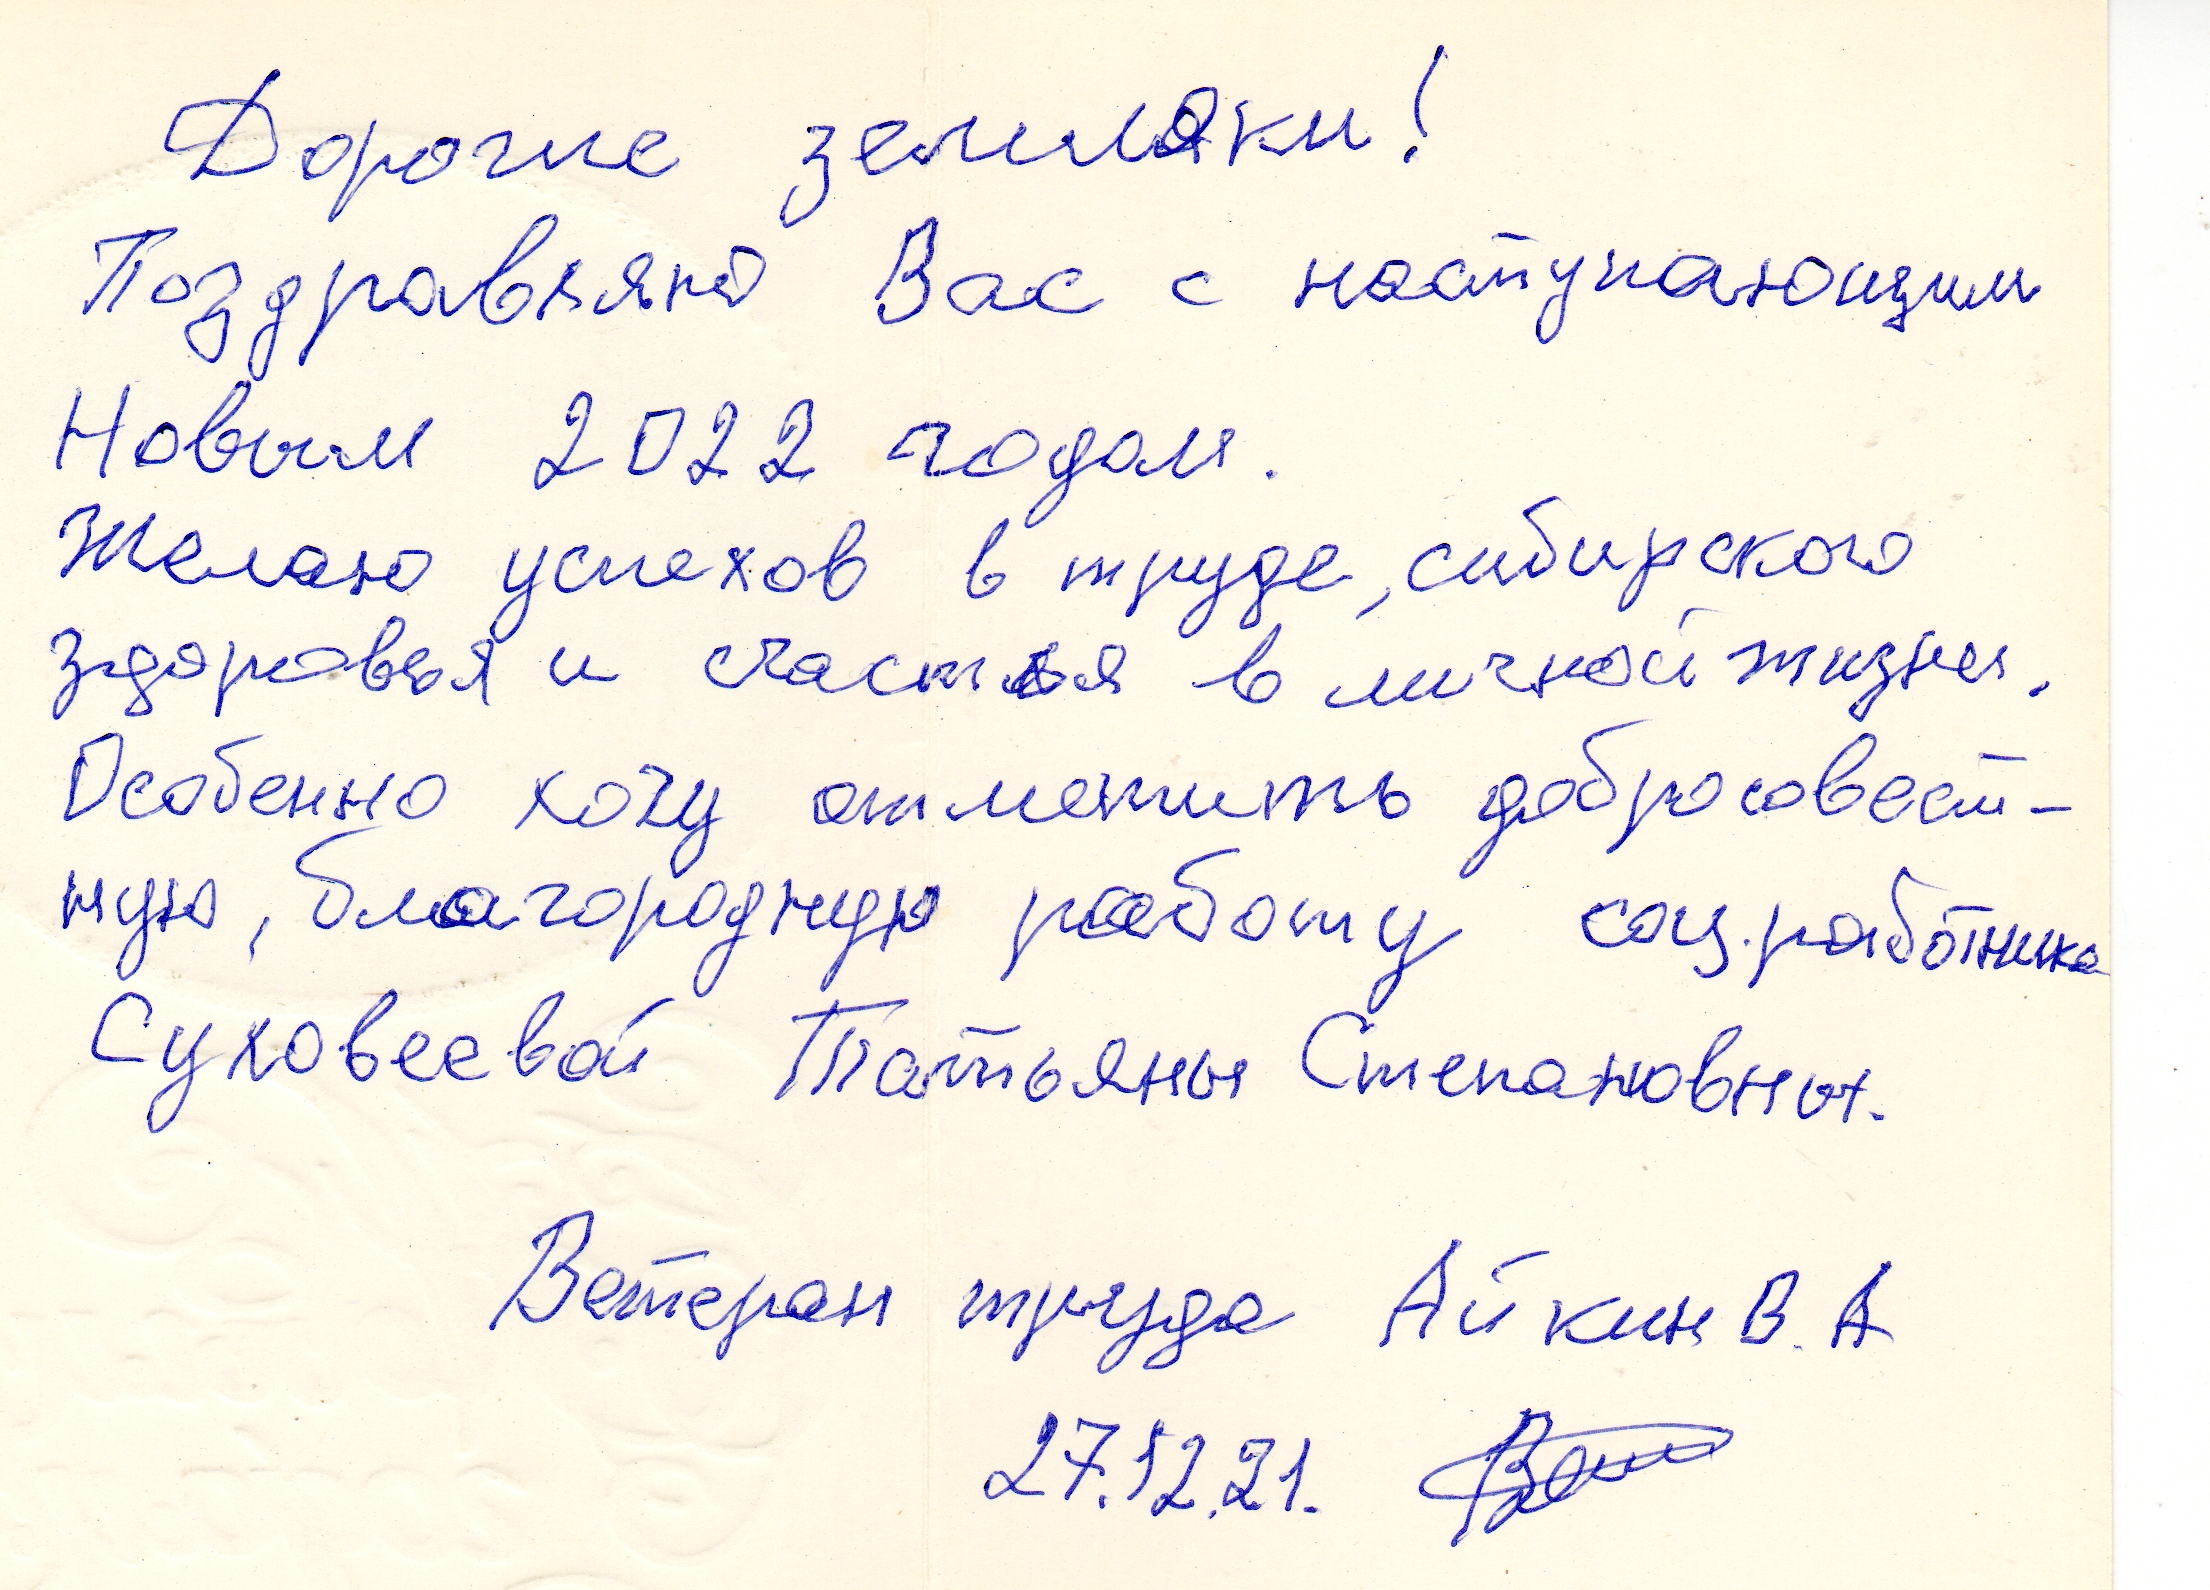 Дорогие земляки!
Поздравляю Вас с наступающим
Новым 2022 годом.
Желаю успехов в труде, сибирского
здоровья и счастья в личной жизни.
Особенно хочу отметить добросовест-
ную, благородную работу соц.работника
Суховеевой Татьяны Степановны.
Ветеран труда Айкин В.А
27.12.21.